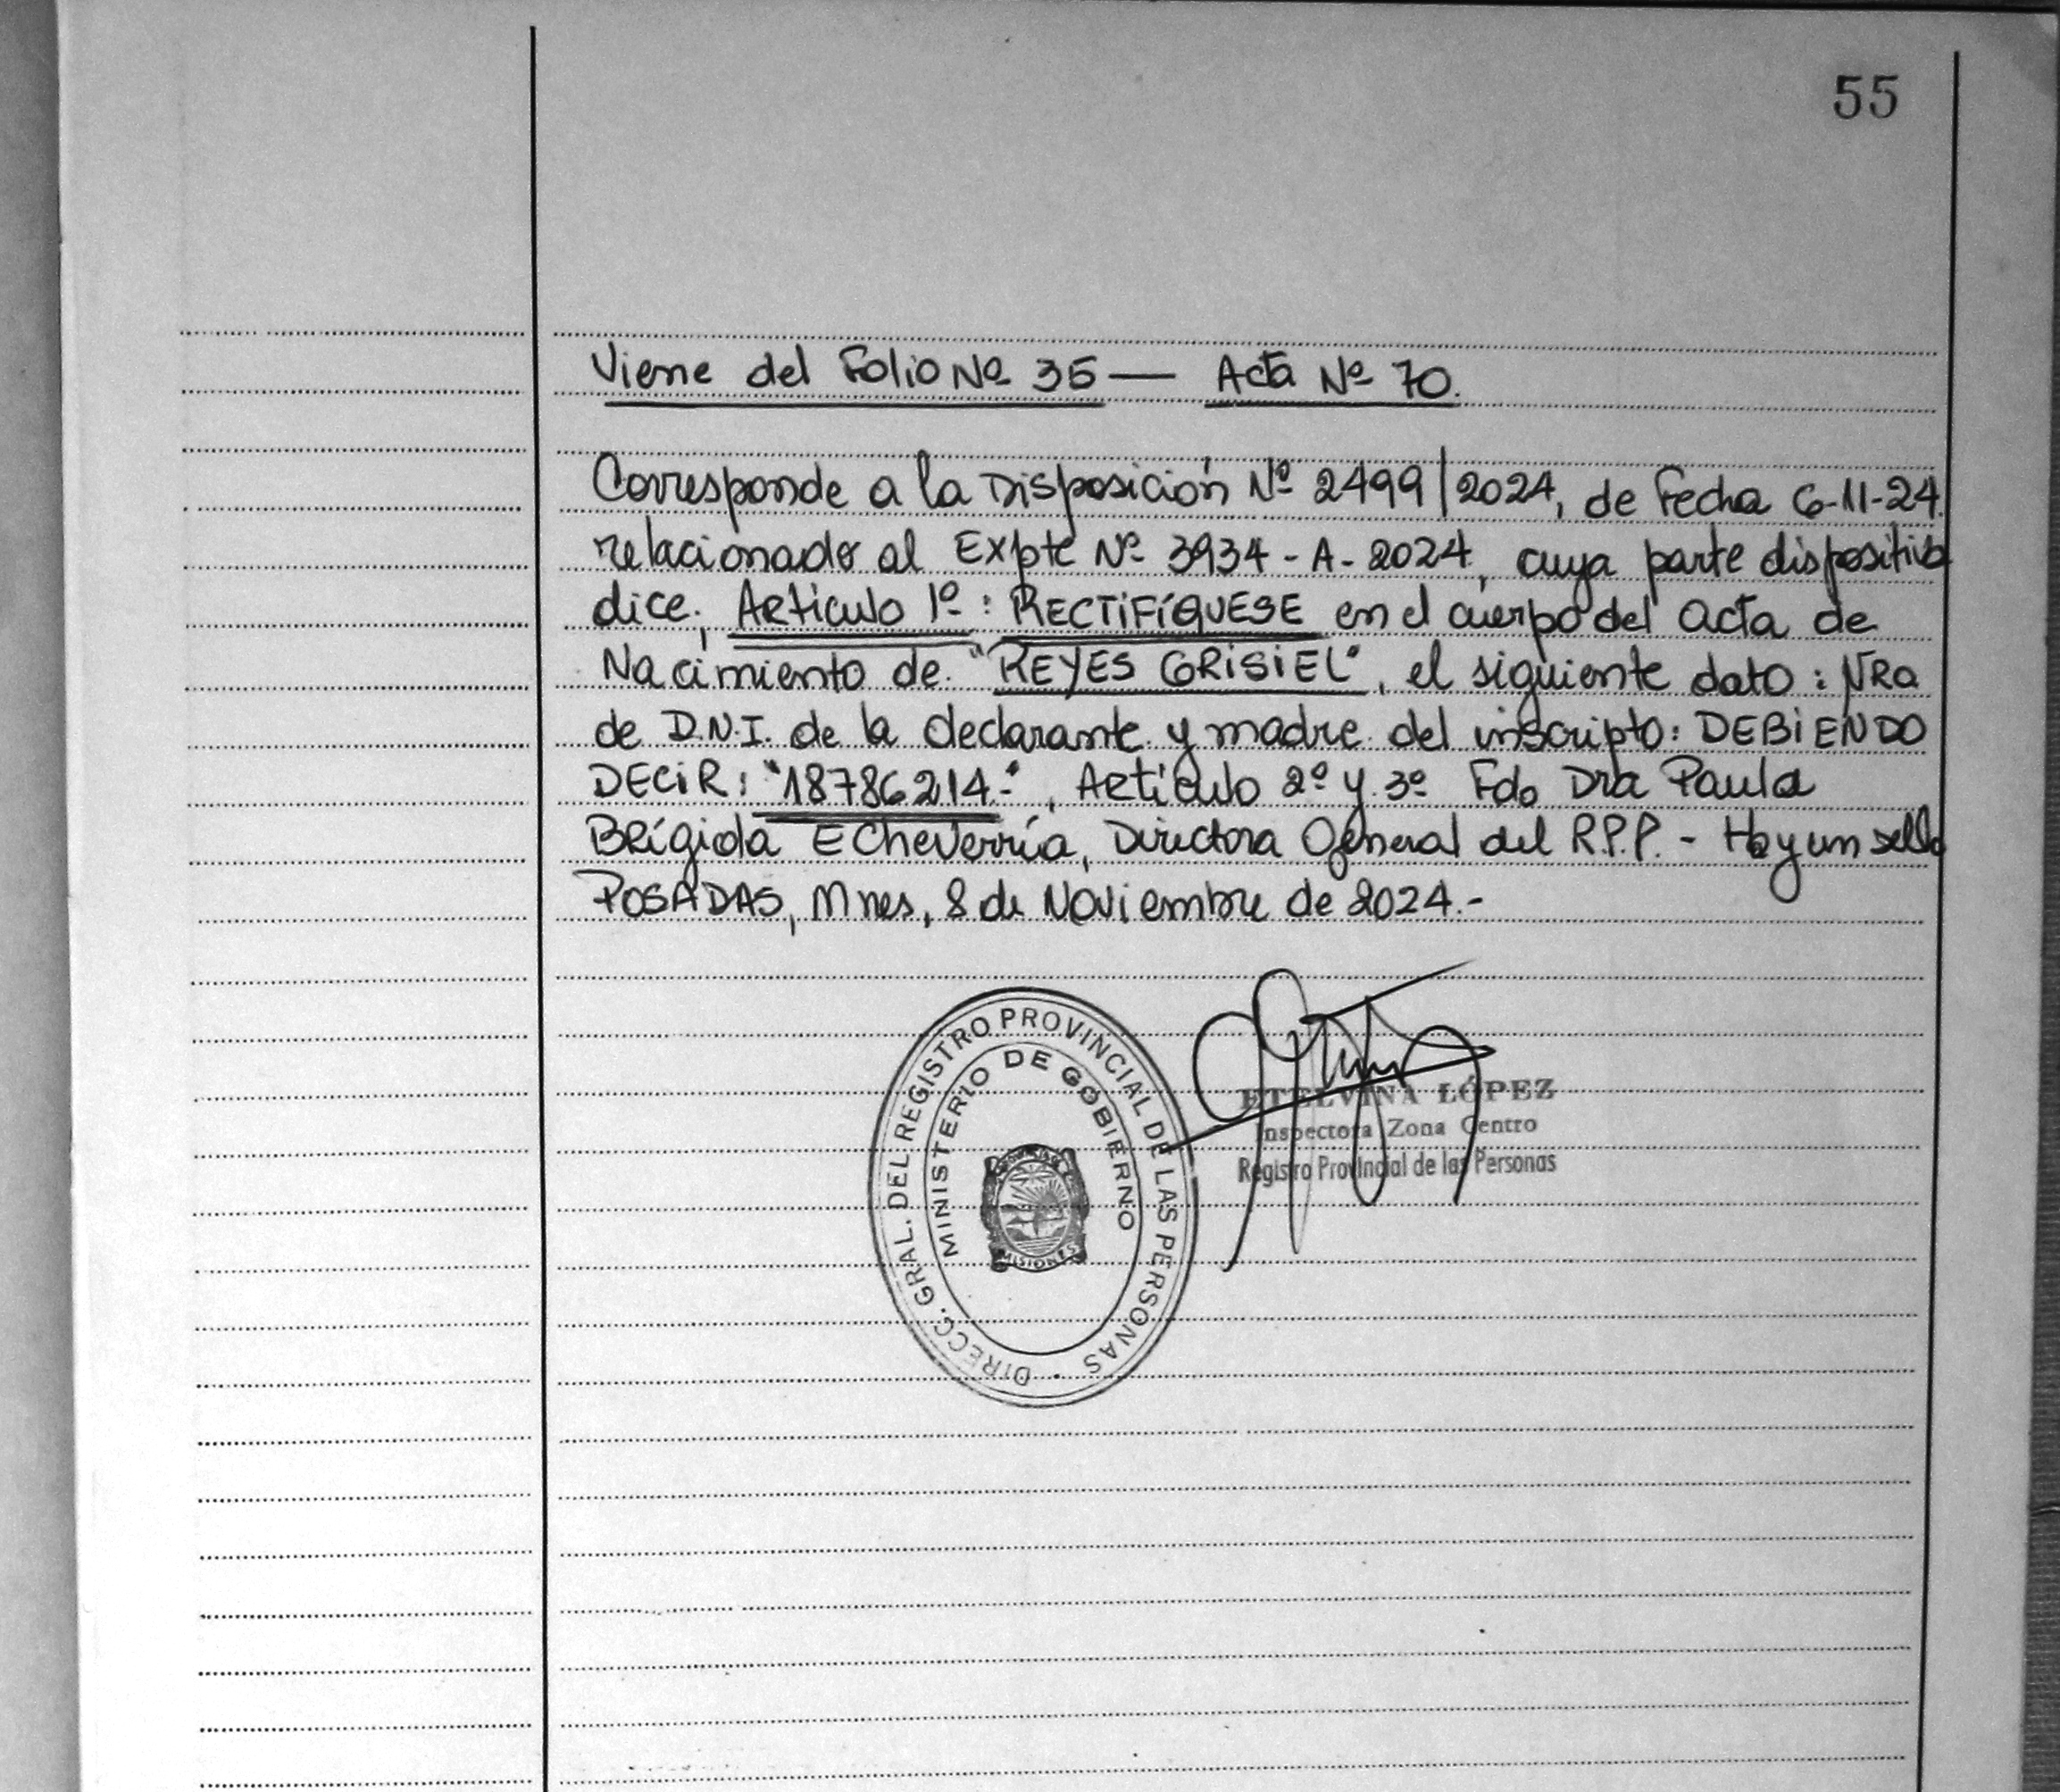 55
Viene del Folio Nº 35 — Acta Nº 70.
Corresponde a la Disposición Nº 2499/2024, de Fecha 6-11-24.
relacionado al Expte Nº 3934-A-2024, cuya parte dispositiva
dice; Artículo 1º: RECTIFÍQUESE en el cuerpo del acta de
Nacimiento de "REYES GRISIEL", el siguiente dato: NRO
de D.N.I. de la declarante y madre del inscripto: DEBIENDO
DECIR: "18786214-", Artículo 2º y 3º Fdo Dra Paula
Brígida Echeverría, Directora General del R.P.P. - Hay un sello
POSADAS, Mnes, 8 de Noviembre de 2024.-
DIRECC. GRAL. DEL REGISTRO PROVINCIAL DE LAS PERSONAS
MINISTERIO DE GOBIERNO
MISIONES
ETELVINA LÓPEZ
Inspectora Zona Centro
Registro Provincial de las Personas